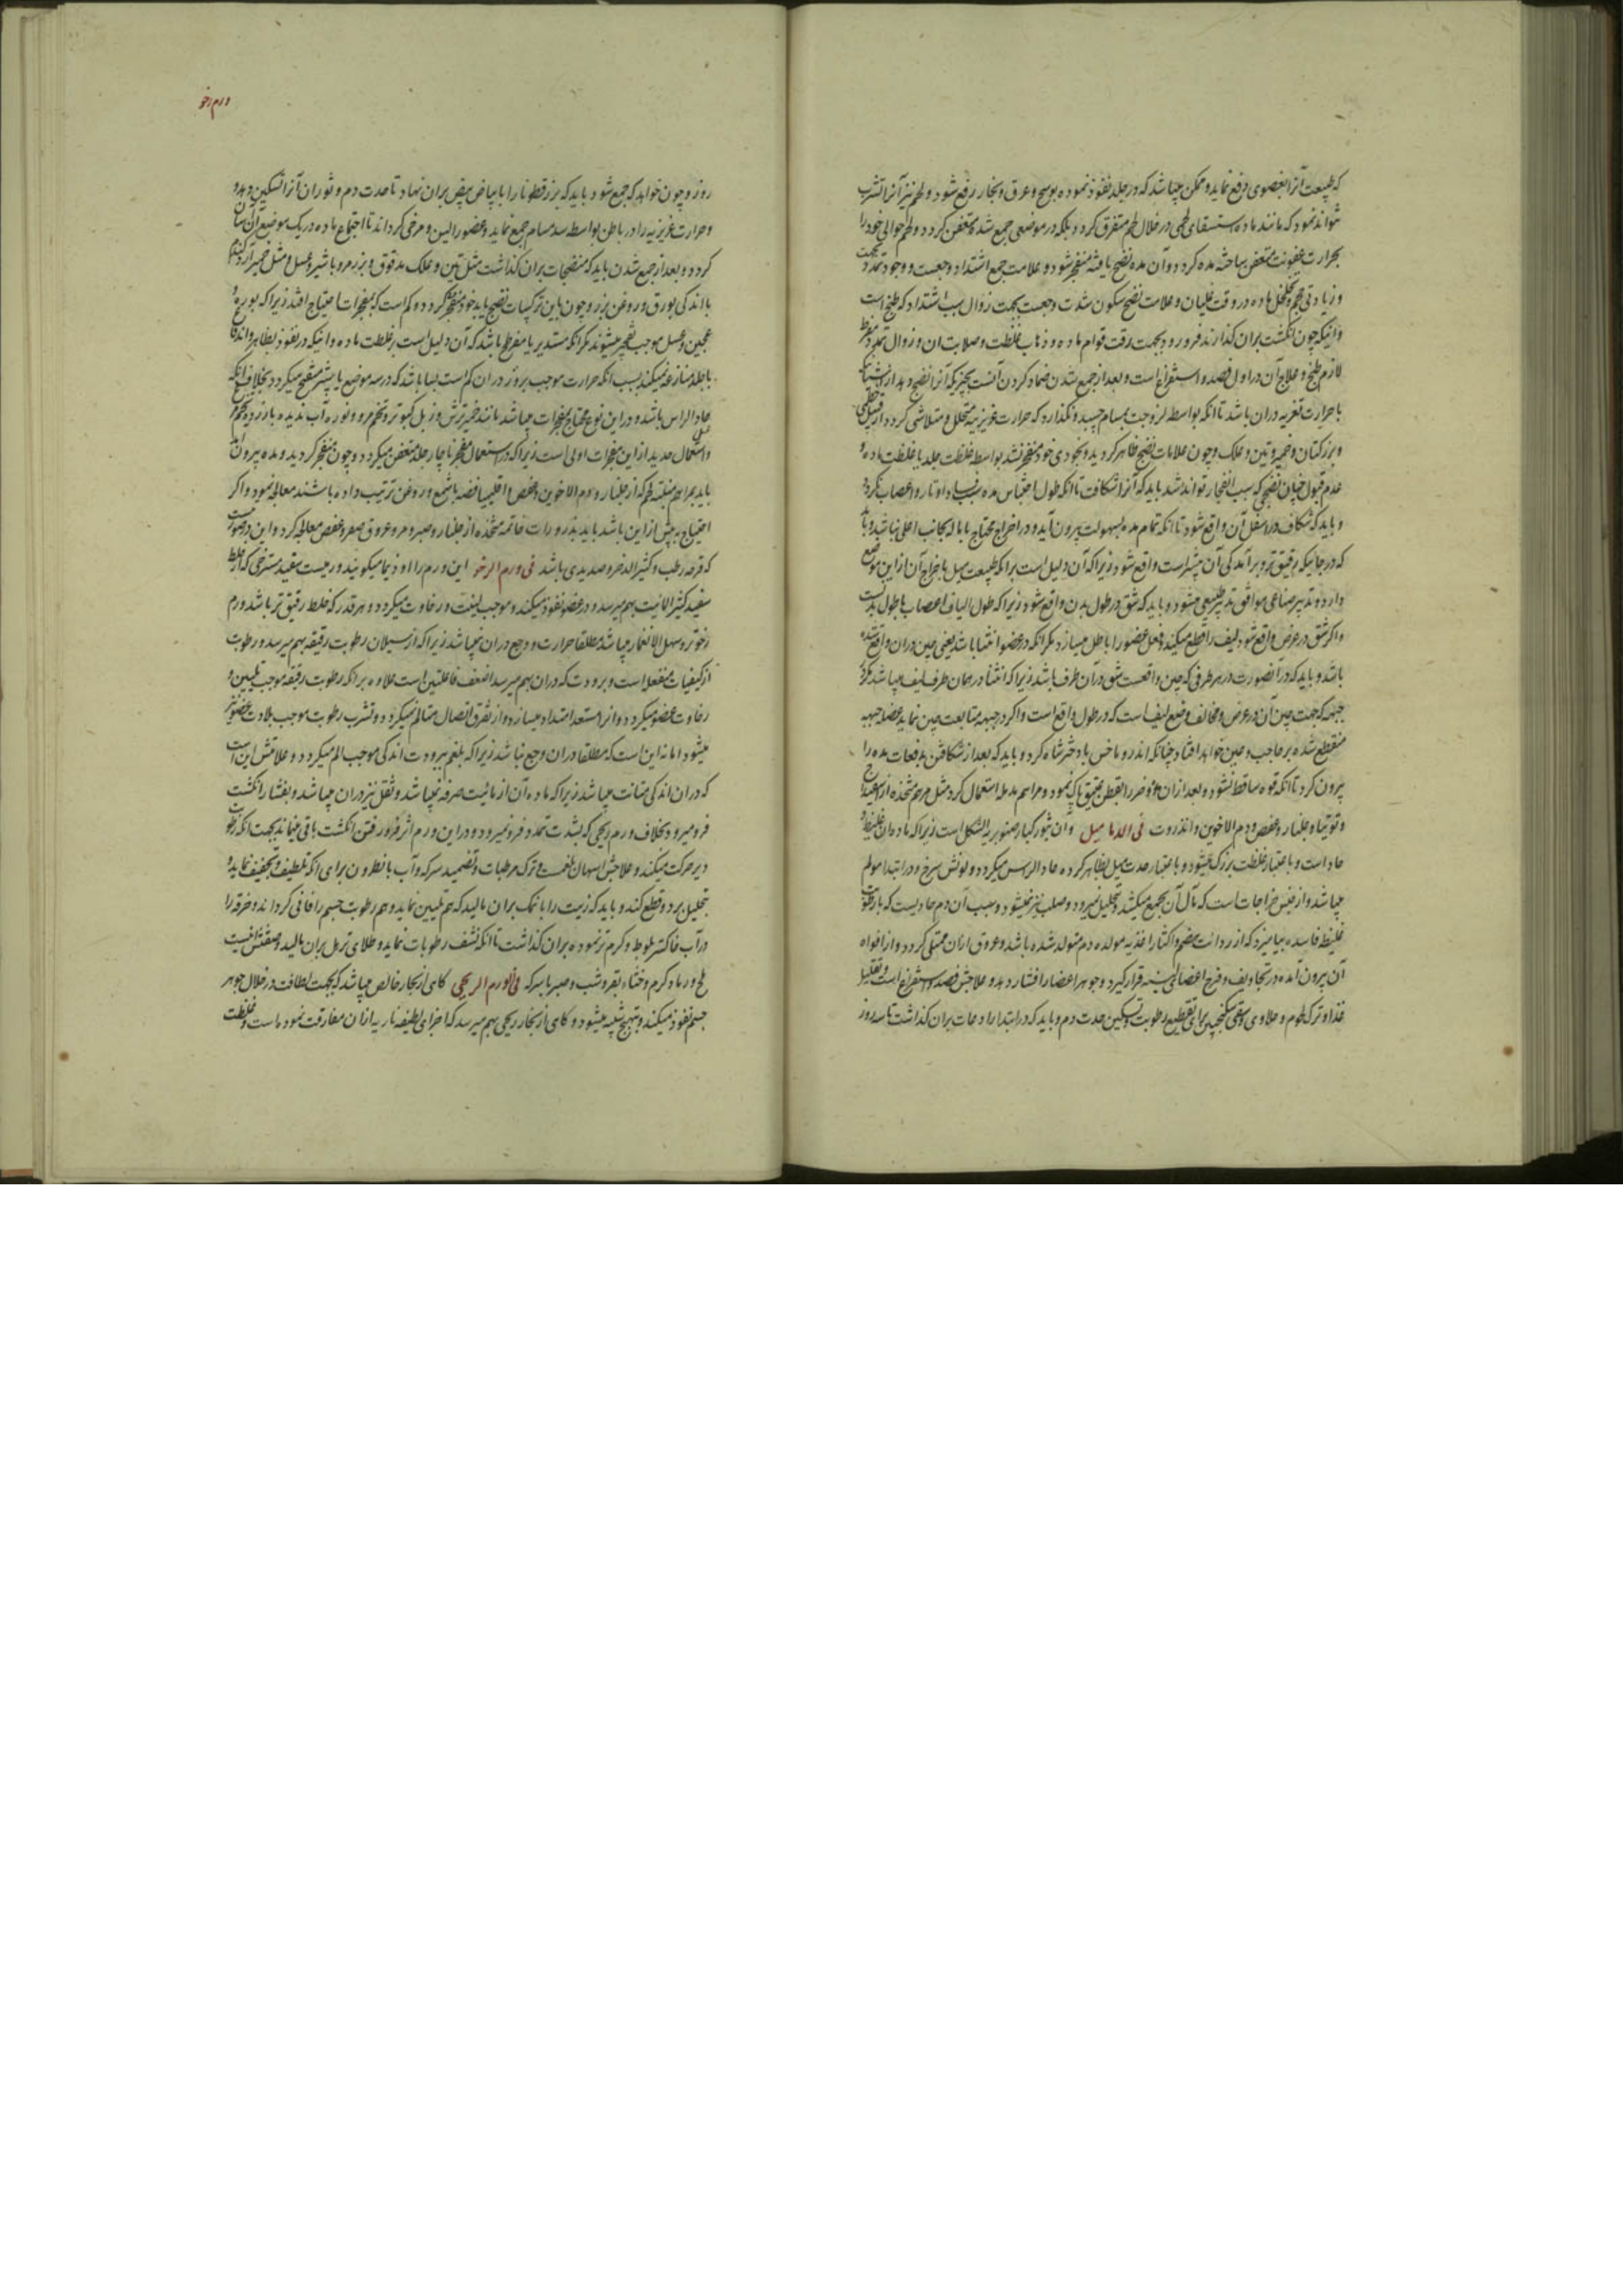 که طبیعت آنرا بعضوی دفع نماید و ممکن میباشد که در جلد نفوذ نموده بوسخ و عرق و بخار رفع شود و لحم نیز آنرا تشرب
نتواند نمود که مانند ماده استسقای لحمی در خلال لحم متفرق کردد بلکه در موضعی جمع شده متعفن کردد و لحم حوالی خود را
بحرارت عفونت متعفن ساخته مده کردد و آن مده نضج یافته منفجر شود و علامت جمع اشتداد وجعست و وجود تمدد
و زیادتی حجم و تخلخل ماده در وقت غلیان و علامت نضج سکون شدت وجعست بجهت زوال سبب اشتداد که طبخ است
و اینکه چون انکشت بران کذارند فرو رود بجهت رقت قوام ماده و ذهاب غلظت و صلابت ان و زوال تمدد مفرط
لازم طبخ و علاج آن در اول فصد و استفراغ است و بعد از جمع شدن ضماد کردن آنست بچیزیکه آنرا نضج دهد از اشیائیکه
با حرارت تغریه دران باشد تا انکه بواسطه لزوجت بمسام چسبد و نکذارد که حرارت غریزیه متحلل و متلاشی کردد از قبیل خطمی
و بزر کتان و خمیر و تین و علک و چون علامات نضج ظاهر کردید و بخودی خود منفجر نشد بواسطه غلظت جلد یا غلظت ماده و
عدم قبول چنان نضجی که سبب انفجار تواند شد باید که آنرا شکافت تا انکه طول احتباس مده سبب فساد اوتار و اعصاب نکردد
و باید که شکاف در اسفل آن واقع شود تا انکه تمام مده بسهولت بیرون آید و در اخراج محتاج باماله بجانب اعلی نباشد و باید
که در جائیکه رقیق تر و برآمدکی آن بیشتر است واقع شود زیرا که آن دلیل است برانکه طبیعت میل باخراج آن ازین موضع
دارد و تدبیر صناعی موافق تدبیر طبیعی میشود و باید که شق در طول بدن واقع شود زیرا که طول الیاف اعصاب با طول بدنست
و اکر شق در عرض واقع شود لیف را قطع میکند و فعل عضو را باطل میسازد مکر انکه در عضو انثنا باشد یعنی چین دران واقع شده
باشد و باید که در آنصورت در هر طرفی که چین واقعست شق در آن طرف باشد زیرا که انثنا در همان طرف لیف میباشد مکر
جبهه که جهت چین آن در عرض و مخالف وضع لیف است که در طول واقع است و اکر در جبهه متابعت چین نماید عضله جبهه
منقطع شده بر حاجب و عین خواهد افتاد چنانکه اندروماخس با دختر شاه کرد و باید که بعد از شکافتن بدفعات مده را
بیرون کرد تا انکه قوه ساقط نشود و بعد ازان موضع را بقطن عتیق پاک نمود و مراهم مدمله استعمال کرد مثل مرهم متخذه از اسفیداج
و توتیا و جلنار و عفص و دم الاخوین و انزروت فی الدمامیل و آن بثور کبار صنوبریة الشکل است زیرا که ماده ان غلیظ و
حاد است و باعتبار غلظت بزرک میشود و باعتبار حدت میل بظاهر کرده حاد الراس میکردد و لونش سرخ و در ابتدا مولم
میباشد و از جنس خراجات است که مآل آن بجمع میکشد و تحلیل نمیرود و صلب نیز نمیشود و سبب آن دم حادیست که با رطوبت
غلیظه فاسده بیامیزد که از رداءت هضم و اکثار اغذیه مولده دم متولد شده باشد و عروق ازان ممتلی کردد و از افواه
آن بیرون آمده در تجاویف و فرج اعضای لینه قرار کیرد و جوهر اعضا را افشار دهد و علاجش فصد و استفراغ است و تقلیل
غذا و ترک لحوم و حلاوی و سقی سکنجبین برای تقطیع رطوبت و تسکین حدت دم و باید که در ابتدا رادعات بران کذاشت تا سه روز
ورم رخو
روز و چون خواهد که جمع شود باید که بزر قطونا را با بیاض بیض بران نهاد تا حدت دم و ثوران آنرا تسکین دهد
و حرارت غریزیه را در باطن بواسطه سد مسام جمع نماید و عضو را لین و مرخی کرداند تا اجتماع ماده در یک موضع آسان
کردد و بعد از جمع شدن باید که منضجات بران کذاشت مثل تین و علک مدقوق و بزر مرو با شیر و عسل و مثل خمیر آرد کندم
با اندکی بورق و روغن بزر و چون باین ترکیبات نضج یابد خود منفجر کردد و کم است که بمفجرات احتیاج افتد زیرا که بوره و
عجین و عسل موجب تفجیر میشوند مکر انکه مستدیر یا مفرطح باشد که آن دلیل است بر غلظت ماده و انیکه در نفوذ بظاهر و اندفاع
با جلد منازعه نمیکند بسبب انکه حرارت موجب بروز دران کم است بسا باشد که در سه موضع یا بیشتر منفتح میکردد بخلاف آنکه
حاد الراس باشد و در این نوع محتاج بمفجرات میباشد مانند خمیر ترش و زبل کبوتر و تخم مرو و نوره آب ندیده با زرده تخم مرغ
و استعمال حدید از این مفجرات اولی است زیرا که در استعمال مفجر ناچار جلد متعفن میکردد و چون منفجر کردید و مده بیرون آمد
باید بمراهم منبته لحم که از جلنار و دم الاخوین و عفص و اقلیمیا فضه با شمع و روغن ترتیب داده باشند معالجه نمود و اکر
احتیاج به بیش از این باشد باید بذرورات خاتمه متخذه از جلنار و صبر و مر و عروق صفر و عفص معالجه کرد و این در صورتیست
که قرحه رطب و کثیر الدخر و صدیدی باشد فی ورم الرخو این ورم را اوذیما میکویند و رمیست سفید مسترخی که از بلغم
سفید کثیر المائیت بهم میرسد و در عضو نفوذ میکند و موجب لینت و رخاوت میکردد و هر قدر که خلط رقیق تر باشد ورم
رخوتر و سهل الانغمار میباشد مطلقا حرارت و وجع دران نمیباشد زیرا که از سیلان رطوبت رقیقه بهم میرسد و رطوبت
از کیفیات منفعله است و برودت که دران بهم میرسد اضعف فاعلتین است علاوه برانکه رطوبت رقیقه موجب تلیین و
رخاوت عضو میکردد و انرا مستعد امتداد میسازد و از تفرق اتصال متالم نمیکردد و تشرب رطوبت موجب بلادت حس عضو نیز
میشود اما نه این است که مطلقا دران وجع نباشد زیرا که بلغم ببرودت اندکی موجب الم میکردد و علامتش این است
که دران اندکی متانت میباشد زیرا که ماده آن از مائیت صرفه نمیباشد و ثقل نیز دران میباشد و بفشار انکشت
فرو میرود بخلاف ورم ریحی که بشدت تمدد فرو نمیرود و در این ورم اثر فرو رفتن انکشت باقی میماند بجهت انکه رطوبت
دیر حرکت میکند و علاجش اسهال بلغمست و ترک مرطبات و تضمید سرکه و آب با نطرون برای انکه تلطیف و تجفیف نماید و
تحلیل برد و قطع کند و باید که زیت را با نمک بران مالید که هم تلیین نماید و هم رطوبت جسم را فانی کرداند و خرقه را
در آب خاکستر بلوط و کرم تر نموده بران کذاشت تا انکه نشف رطوبات نماید و طلای تربل بران مالید و صفتش اینست
ملح و رماد کرم و خثاء بقر و شب و صبر با سرکه فی الورم الریحی کاهی از بخار خالص میباشد که بجهت لطافت در خلال جوهر
جسم نفوذ میکند و بتهبج شبیه میشود و کاهی از بخار ریحی بهم میرسد که اجزای لطیفه ناریه ازان مفارقت نموده است و غلظت